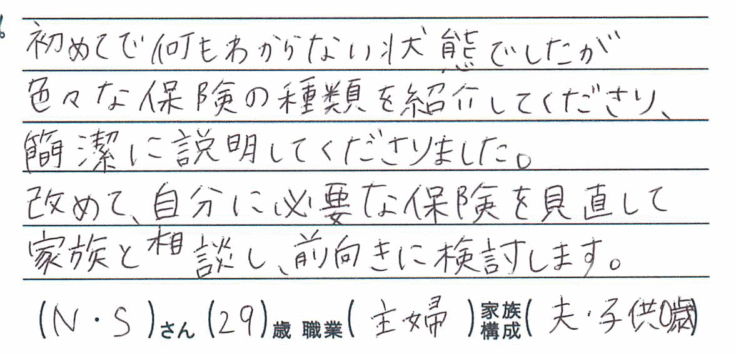 初めてで何もわからない状態でしたが
色々な保険の種類を紹介してくださり、
簡潔に説明してくださりました。
改めて、自分に必要な保険を見直して
家族と相談し、前向きに検討します。
(N・S)さん(29)歳 職業(主婦)家族構成(夫・子供0歳)